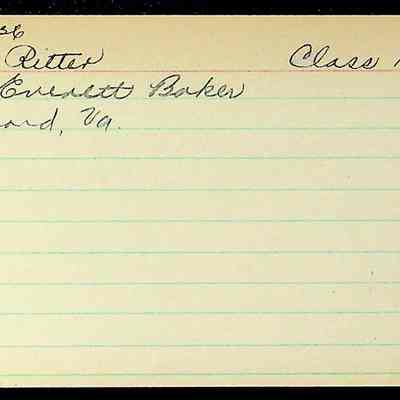 36
Ritter Class
Everett Baker
ard, Va.